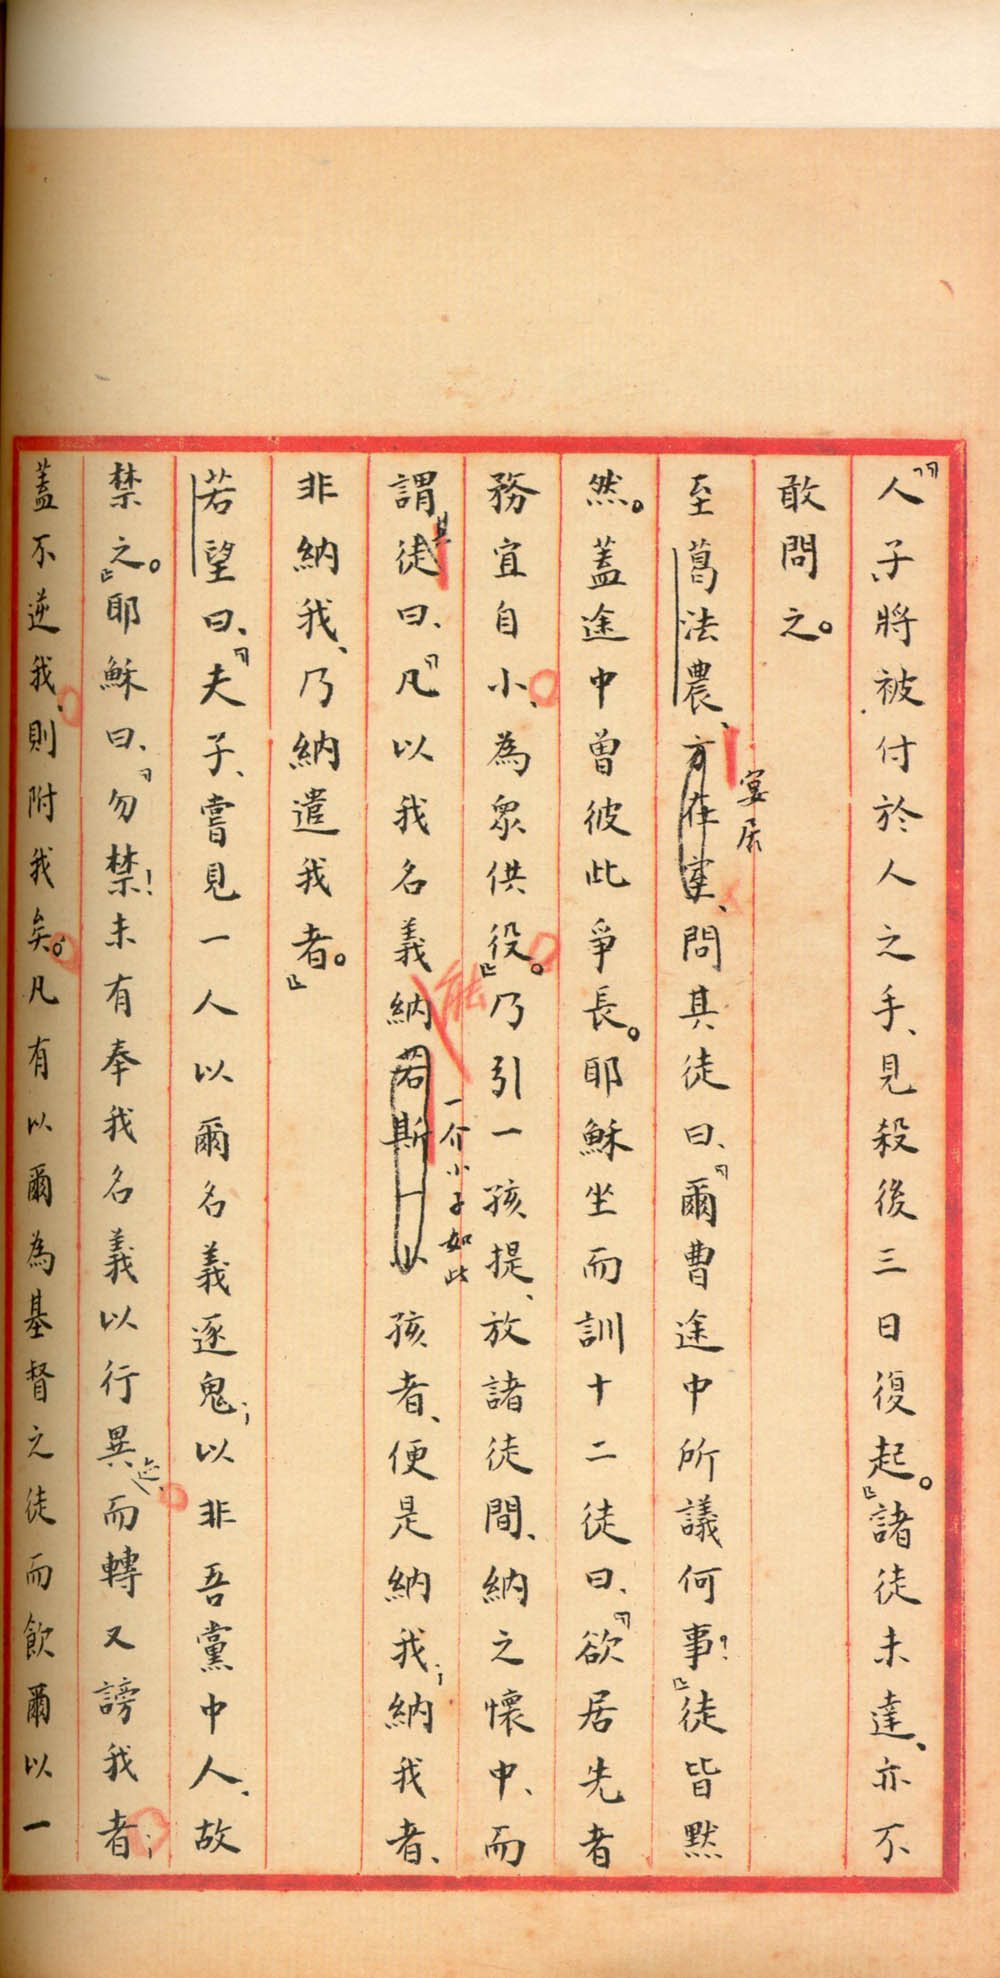 『人子將被付於人之手、見殺後三日復起。』諸徒未達、亦不
敢問之。
至葛法農、方在室、問其徒曰、『爾曹途中所議何事?』徒皆默
宴居
然。蓋途中曾彼此爭長。耶穌坐而訓十二徒曰、『欲居先者
務宜自小、為眾供役。』乃引一孩提、放諸徒間、納之懷中、而
謂徒曰、『凡以我名義納若斯一小孩者、便是納我;納我者、
其
能
一介小子如此
非納我、乃納遣我者。』
若望曰、『夫子、嘗見一人以爾名義逐鬼;以非吾黨中人、故
禁之。』耶穌曰、『勿禁!未有奉我名義以行異跡、而轉又謗我者;
蓋不逆我、則附我矣。凡有以爾為基督之徒而飲爾以一